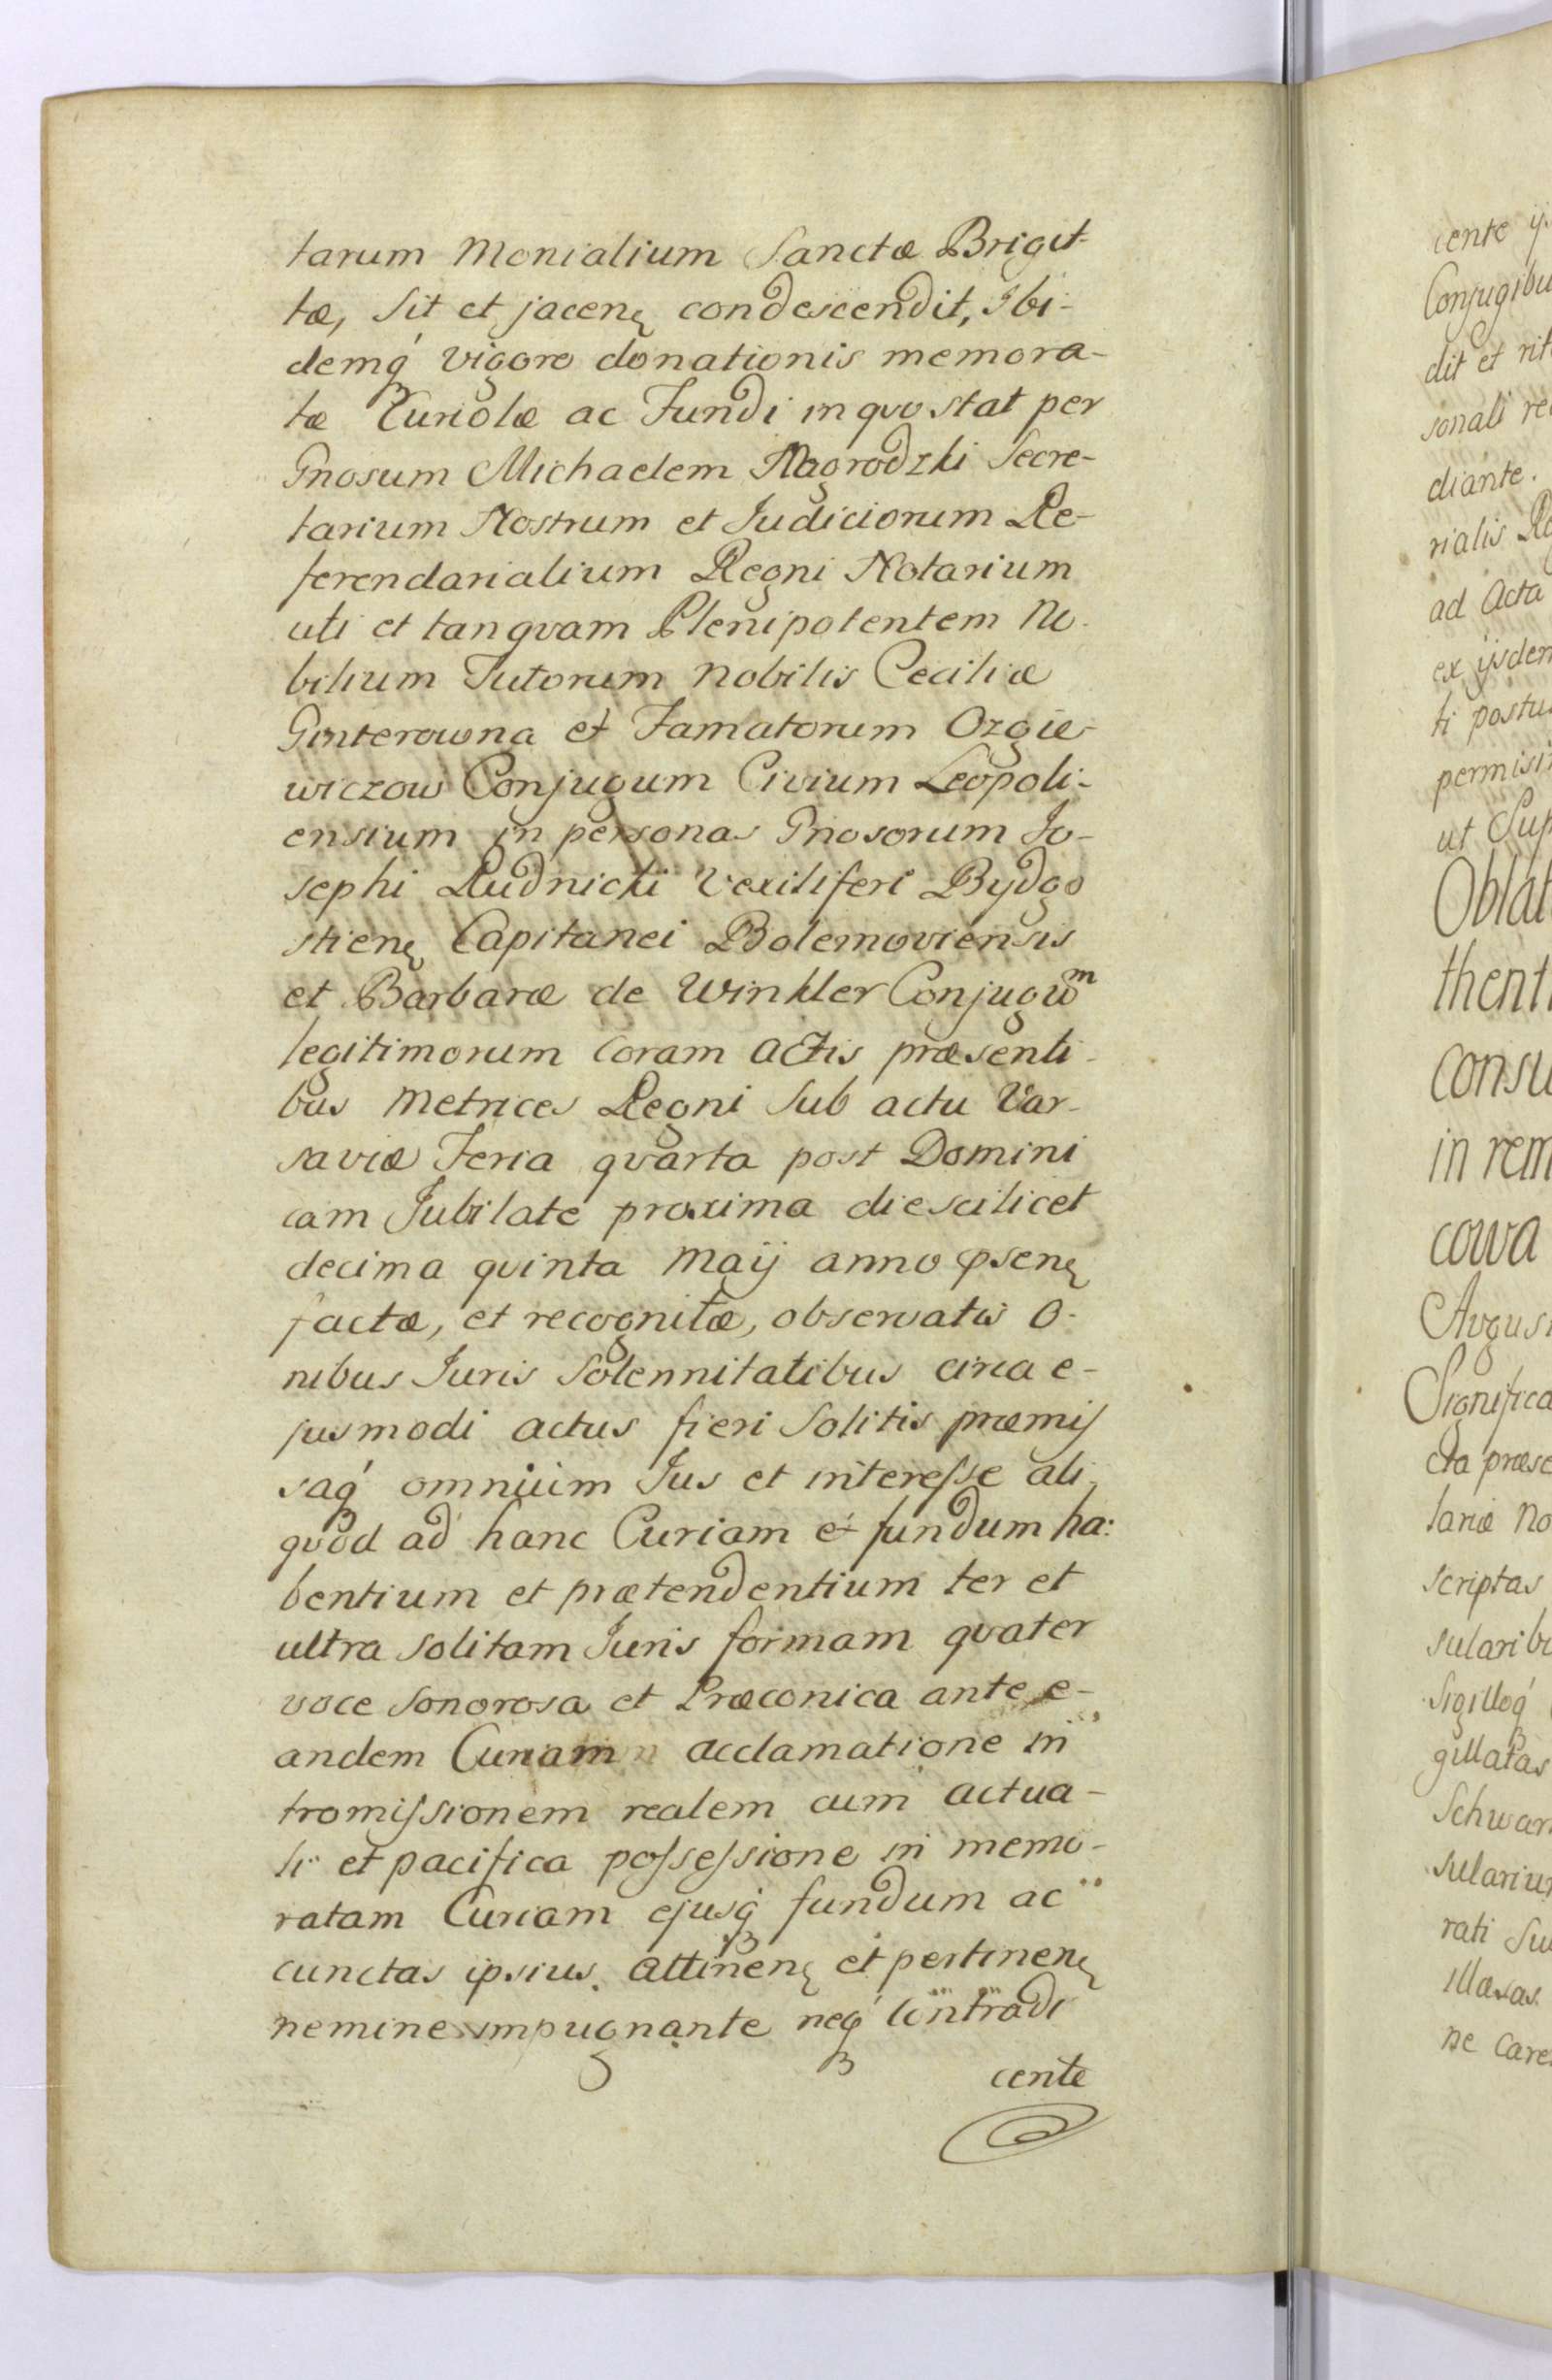 tarum Monialium Sanctæ Brigit-
tæ, sit et jacenę condescendit, Ibi-
demq́ vigore donationis memora-
tæ Curiolæ ac Fundi in quo stat per
Gnosum Michaelem Nagrodzki Secre-
tarium Nostrum et Judiciorum Re-
ferendarialium Regni Notarium
uti et tanquam Plenipotentem No-
bilium Tutorum Nobilis Ceciliæ
Ginterowna et Famatorum Ozgie-
wiczow Conjugum Civium Leopoli-
ensium in personas Gnosorum Jo-
sephi Rudnicki Vexiliferi Bydgo
stienę Capitanei Bolemoviensis
et Barbaræ de Winkler Conjugum
legitimorum coram Actis præsenti-
bus Metrices Regni Sub actu Var-
saviæ Feria quarta post Domini
cam Jubilate proxima die scilicet
decima quinta Maij anno psenę
factæ, et recognitæ, observatis O-
nibus Juris Solennitatibus circa e-
jusmodi actus fieri Solitis præmis
saq́ omnium Jus et interesse ali-
quod ad hanc Curiam et fundum ha:
bentium et prætendentium ter et
ultra solitam Juris formam quater
voce Sonorosa et Præconica ante e-
andem Curiam acclamatione in
tromissionem realem cum actua-
li et pacifica possessione in memo-
ratam Curiam ejusq́ fundum ac
cunctas ipsius attinenę et pertinenę
nemine impugnante neq́ contradi
cente
cente
Conjugibu
dit et rit
sonali re
diante.
rialis Re
ad Acta
ex ijsdem
ti postu
permisi
ut Sup
Oblat
thenti
consu
in rem
cowa
August
Significa
cta præse
lariæ No
scriptas
sularib
Sigilloq́
gillatas
Schwar
sularium
rati Su
illæsas
ne care